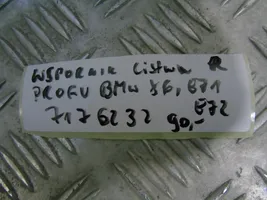 WSPORNIK Listwa R
PROGU BMW X6, E71
E72
7176232 90,-